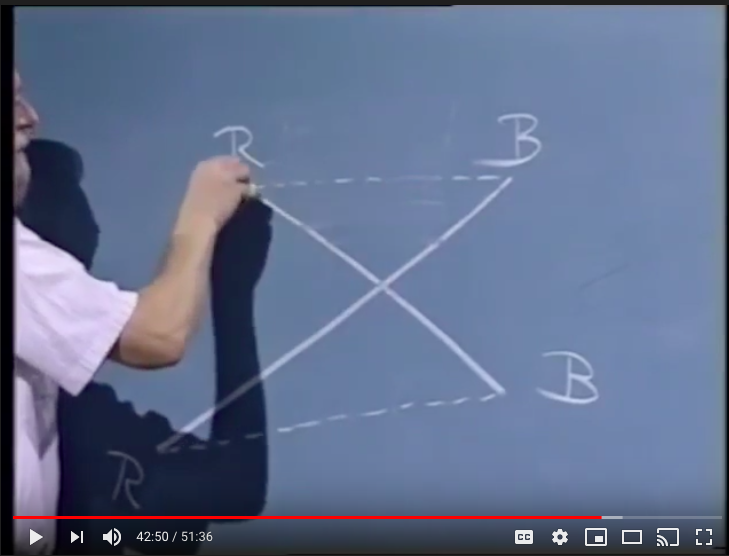 R B
B
R
42:50 / 51:36
CC